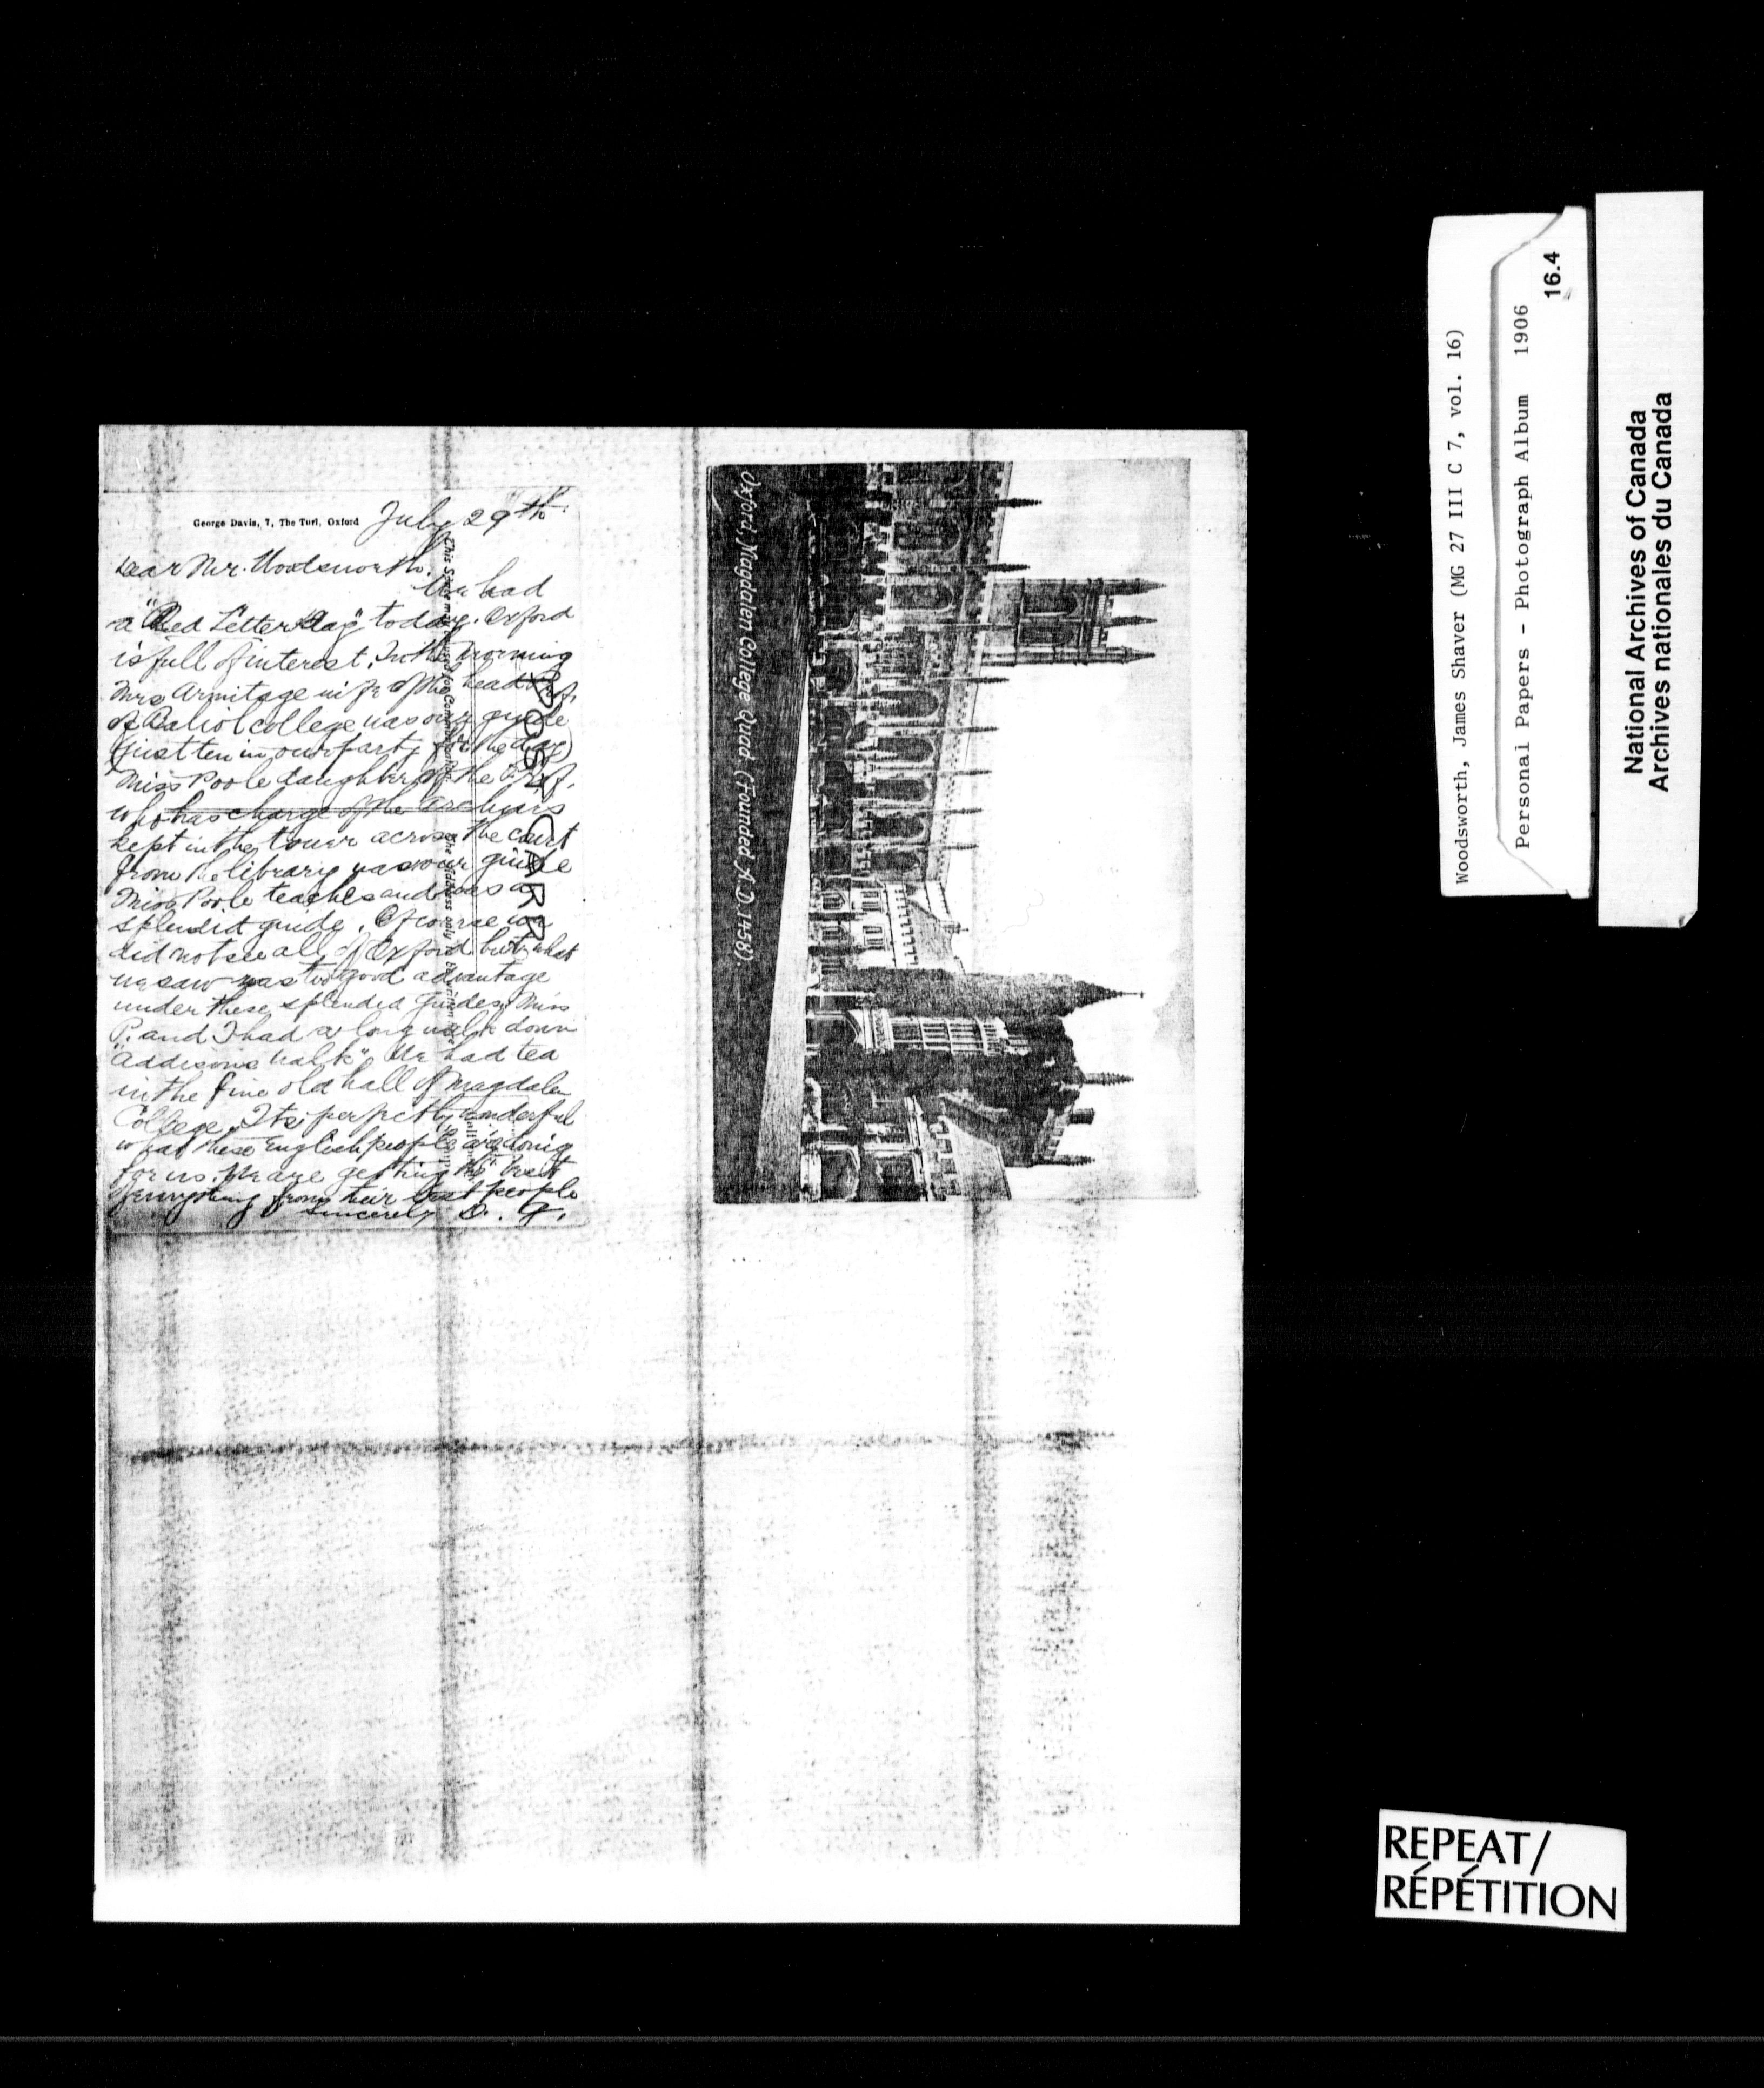 George Davis, 7, The Turl, Oxford
July 29th
Dear Mr. Woodsworth.
We had
a "Red Letter Day" today. Oxford
is full of interest. In the morning
Mrs Armitage wife of the head Prof.
of Baliol college was our guide
(just ten in our party for the day)
Miss Poole daughter of the Prof.
who has charge of the archives
kept in the tower across the court
from the library was our guide
Miss Poole teaches and was a
splendid guide. Of course we
did not see all of Oxford but what
we saw was to good advantage
under these splendid guides. Miss
P. and I had a long walk down
"Addisons Walk". We had tea
in the fine old hall of Magdalen
College. Its perfectly wonderful
what these English people are doing
for us. We are getting the best
of everything from their best people
Sincerely D.
POST CARD
The Address only to be
Oxford, Magdalen College Quad. (Founded A.D. 1458).
Woodsworth, James Shaver (MG 27 III C 7, vol. 16)
Personal Papers - Photograph Album 1906
16.4
National Archives of Canada
Archives nationales du Canada
REPEAT/
RÉPÉTITION